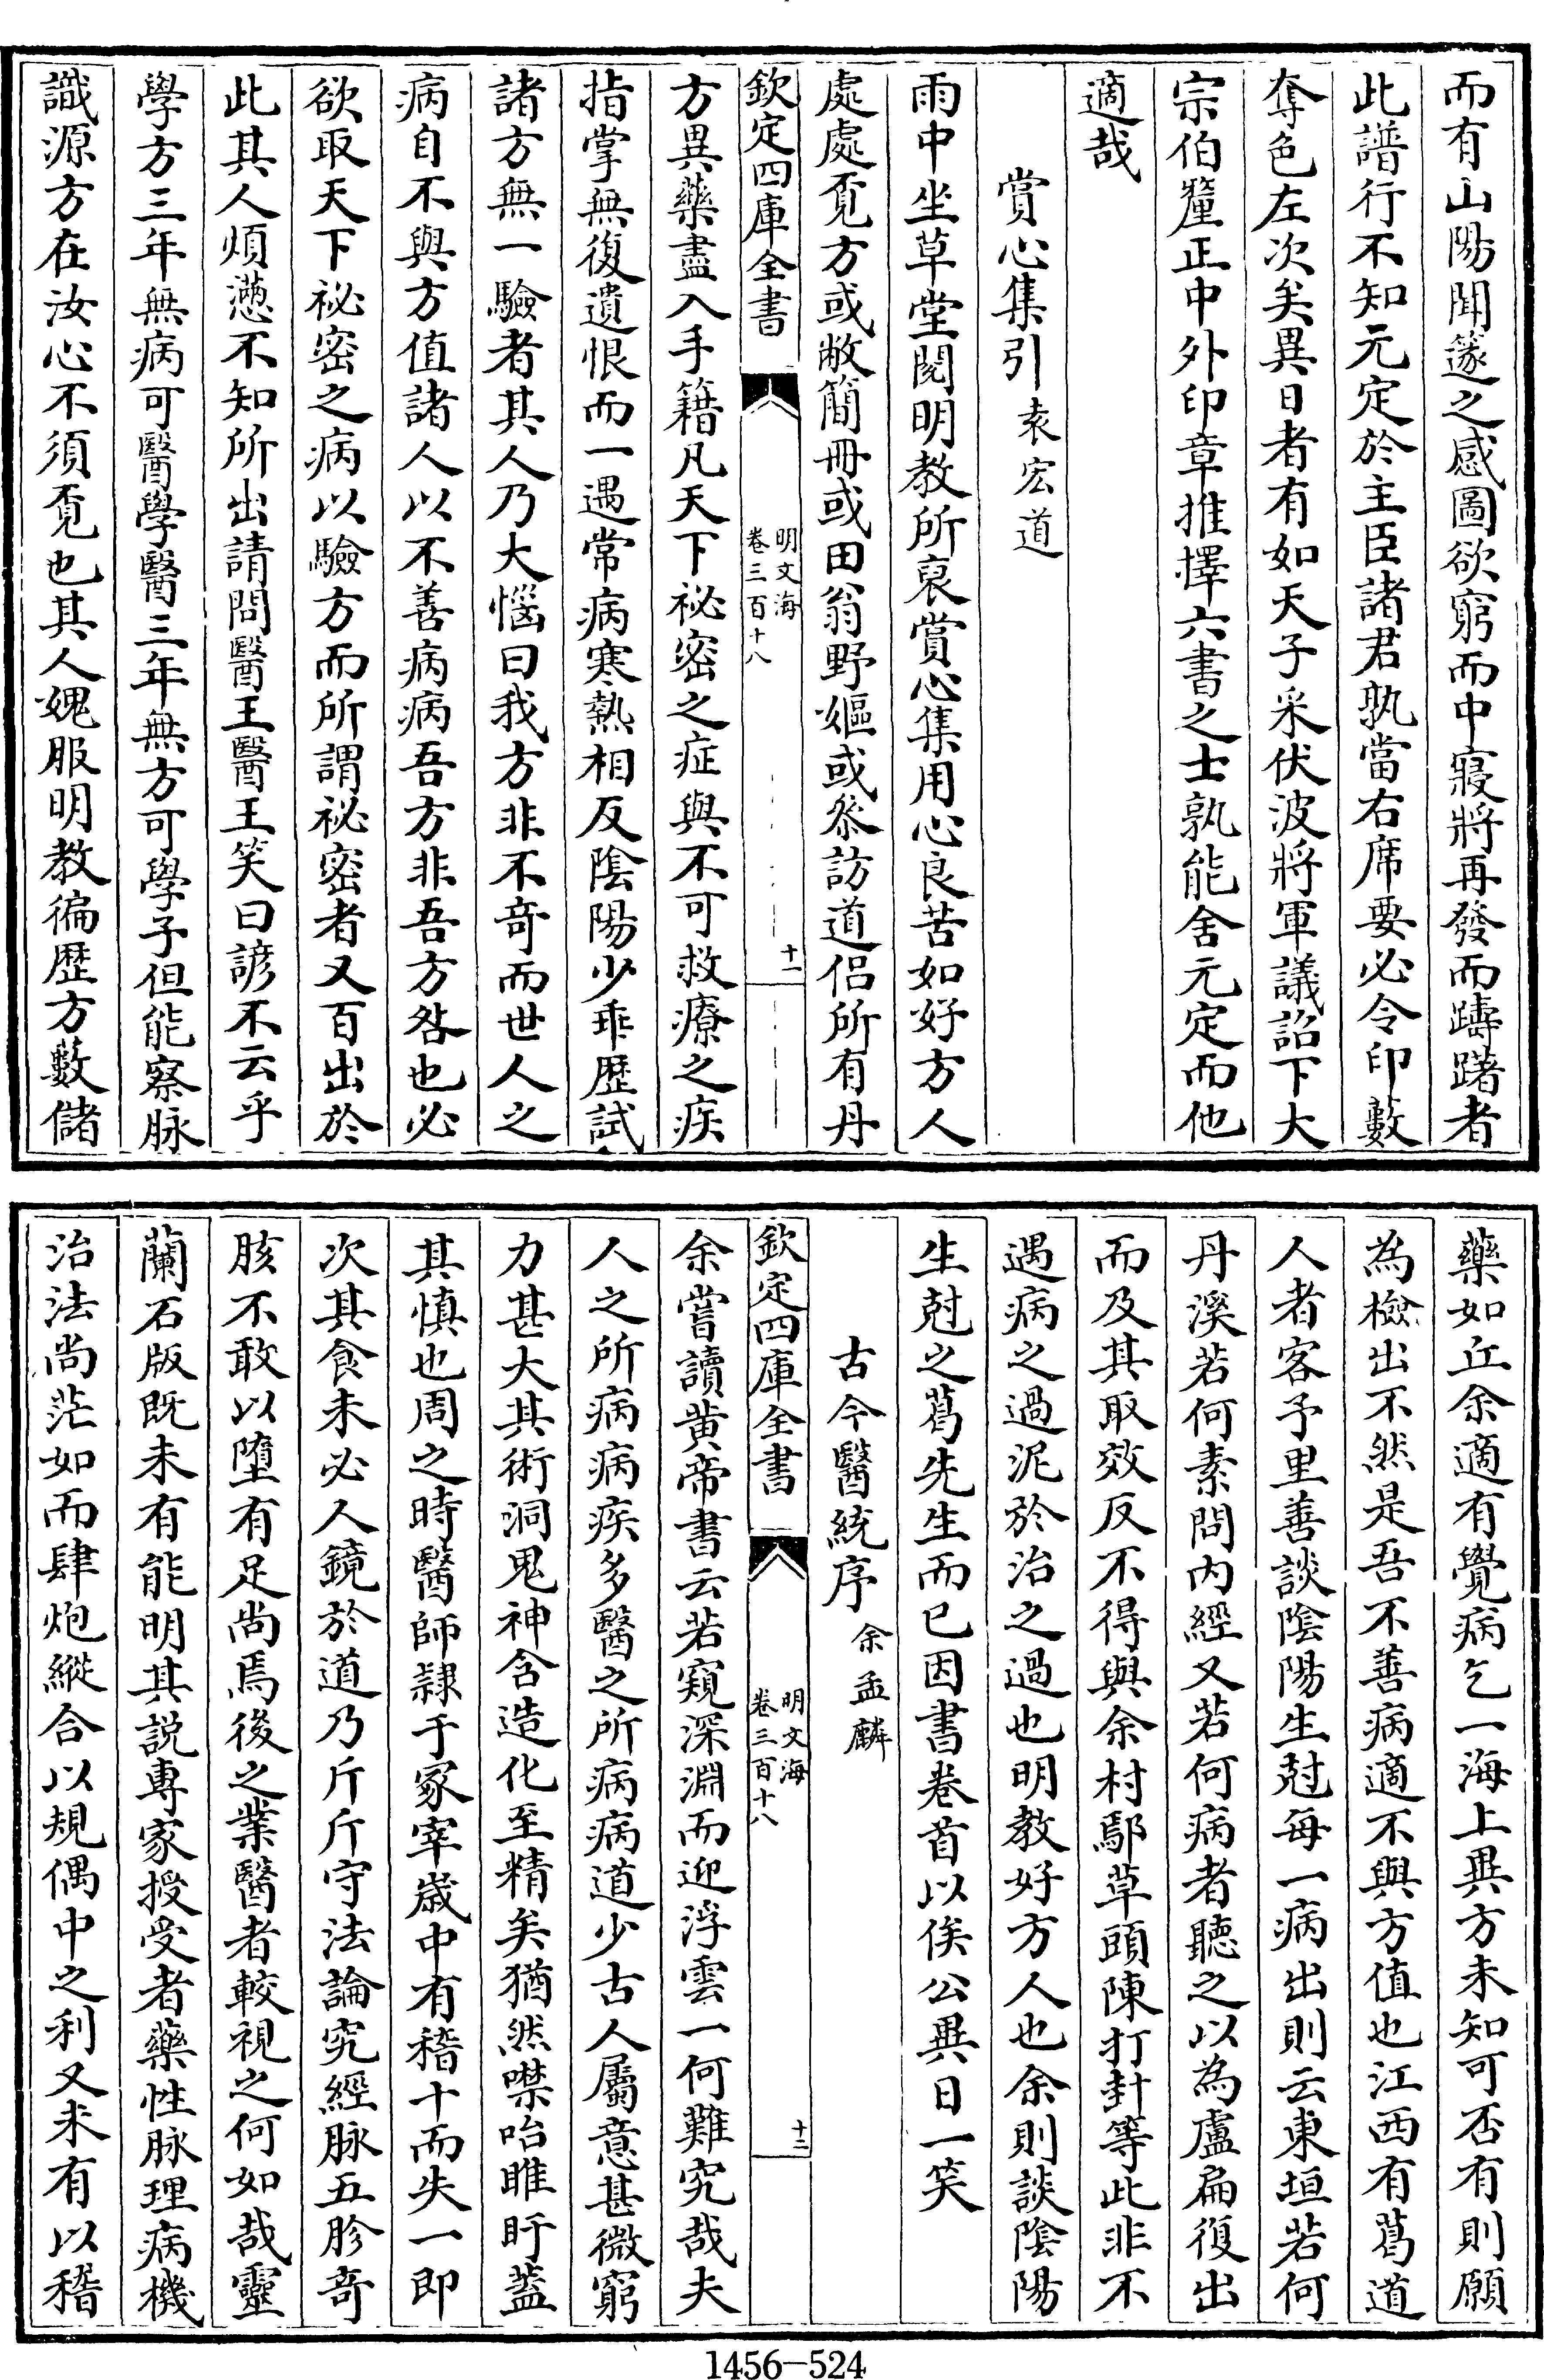 而有山陽聞篴之感圖欲窮而中寢將再發而躊躇者
此譜行不知元定於主臣諸君孰當右席要必令印藪
奪色左次矣異日者有如天子采伏波將軍議詔下大
宗伯釐正中外印章推擇六書之士孰能舍元定而他
適哉
賞心集引 袁宏道
雨中坐草堂閱明教所裒賞心集用心良苦如好方人
處處覔方或敝簡冊或田翁野嫗或叅訪道侶所有丹
欽定四庫全書
明文海
卷三百十八
十一
方異藥盡入手籍凡天下祕密之症與不可救療之疾
指掌無復遺恨而一遇常病寒熱相反陰陽少乖歴試
諸方無一驗者其人乃大惱曰我方非不竒而世人之
病自不與方值諸人以不善病病吾方非吾方咎也必
欲取天下祕密之病以驗方而所謂祕密者又百出於
此其人煩懣不知所出請問醫王醫王笑曰諺不云乎
學方三年無病可醫學醫三年無方可學子但能察脉
識源方在汝心不須覔也其人媿服明教徧歴方藪儲
藥如丘余適有覺病乞一海上異方未知可否有則願
為檢出不然是吾不善病適不與方值也江西有葛道
人者客予里善談陰陽生尅每一病出則云東垣若何
丹溪若何素問内經又若何病者聽之以為盧扁復出
而及其取效反不得與余村鄢草頭陳打封等此非不
遇病之過泥於治之過也明教好方人也余則談陰陽
生尅之葛先生而已因書卷首以俟公異日一笑
古今醫統序 余孟麟
欽定四庫全書
明文海
卷三百十八
十二
余嘗讀黄帝書云若窺深淵而迎浮雲一何難究哉夫
人之所病病疾多醫之所病病道少古人屬意甚微窮
力甚大其術洞鬼神含造化至精矣猶然噤呿睢盱葢
其慎也周之時醫師隷于冢宰歳中有稽十而失一即
次其食未必人鏡於道乃斤斤守法論究經脉五胗竒
胲不敢以墮有足尚焉後之業醫者較視之何如哉靈
蘭石版既未有能明其説專家授受者藥性脉理病機
治法尚茫如而肆炮縱合以規偶中之利又未有以稽
1456—524